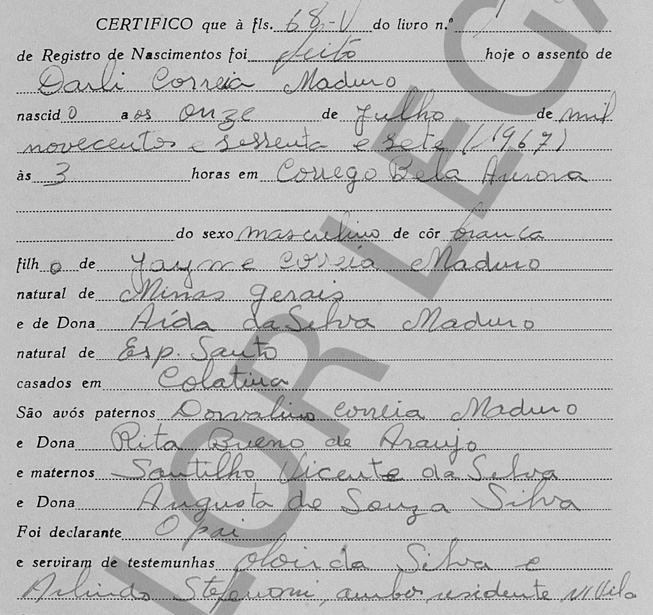 CERTIFICO que à fls. 68-V do livro n.º
de Registro de Nascimentos foi feito hoje o assento de
Darli Correia Maduro
nascido aos onze de Julho de mil
novecentos e sessenta e sete (1967)
às 3 horas em Corrego Bela Aurora
do sexo masculino de côr branca
filho de Jayme Correia Maduro
natural de Minas Gerais
e de Dona Aída da Silva Maduro
natural de Esp. Santo
casados em Colatina
São avós paternos Dorvalino Correia Maduro
e Dona Rita Bueno de Araujo
e maternos Santilho Vicente da Silva
e Dona Augusta de Souza Silva
Foi declarante O pai
e serviram de testemunhas da Silva e
Arlindo Stefenoni, ambos residente N/Vila
LOR LEGA